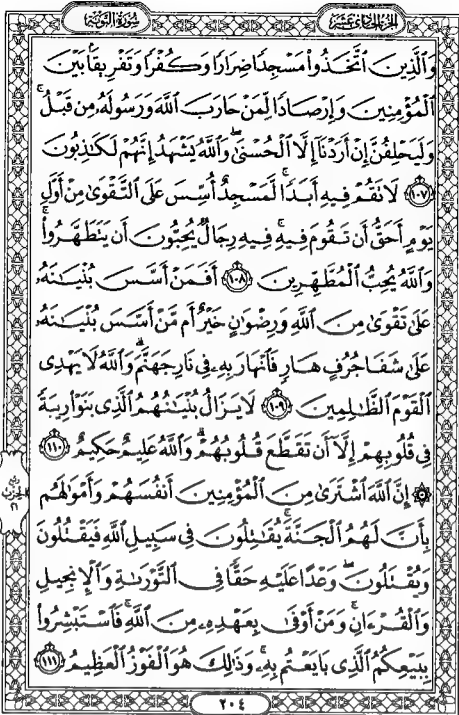 الجزء الحادي عشر
سورة التوبة
وَٱلَّذِينَ ٱتَّخَذُوا۟ مَسْجِدًا ضِرَارًا وَكُفْرًا وَتَفْرِيقًۢا بَيْنَ
ٱلْمُؤْمِنِينَ وَإِرْصَادًا لِّمَنْ حَارَبَ ٱللَّهَ وَرَسُولَهُۥ مِن قَبْلُ ۚ
وَلَيَحْلِفُنَّ إِنْ أَرَدْنَآ إِلَّا ٱلْحُسْنَىٰ ۖ وَٱللَّهُ يَشْهَدُ إِنَّهُمْ لَكَـٰذِبُونَ
﴿١٠٧﴾ لَا تَقُمْ فِيهِ أَبَدًا ۚ لَّمَسْجِدٌ أُسِّسَ عَلَى ٱلتَّقْوَىٰ مِنْ أَوَّلِ
يَوْمٍ أَحَقُّ أَن تَقُومَ فِيهِ ۚ فِيهِ رِجَالٌ يُحِبُّونَ أَن يَتَطَهَّرُوا۟ ۚ
وَٱللَّهُ يُحِبُّ ٱلْمُطَّهِّرِينَ ﴿١٠٨﴾ أَفَمَنْ أَسَّسَ بُنْيَـٰنَهُۥ
عَلَىٰ تَقْوَىٰ مِنَ ٱللَّهِ وَرِضْوَٰنٍ خَيْرٌ أَم مَّنْ أَسَّسَ بُنْيَـٰنَهُۥ
عَلَىٰ شَفَا جُرُفٍ هَارٍ فَٱنْهَارَ بِهِۦ فِى نَارِ جَهَنَّمَ ۗ وَٱللَّهُ لَا يَهْدِى
ٱلْقَوْمَ ٱلظَّـٰلِمِينَ ﴿١٠٩﴾ لَا يَزَالُ بُنْيَـٰنُهُمُ ٱلَّذِى بَنَوْا۟ رِيبَةً
فِى قُلُوبِهِمْ إِلَّآ أَن تَقَطَّعَ قُلُوبُهُمْ ۗ وَٱللَّهُ عَلِيمٌ حَكِيمٌ ﴿١١٠﴾
۞ إِنَّ ٱللَّهَ ٱشْتَرَىٰ مِنَ ٱلْمُؤْمِنِينَ أَنفُسَهُمْ وَأَمْوَٰلَهُم
بِأَنَّ لَهُمُ ٱلْجَنَّةَ ۚ يُقَـٰتِلُونَ فِى سَبِيلِ ٱللَّهِ فَيَقْتُلُونَ
وَيُقْتَلُونَ ۖ وَعْدًا عَلَيْهِ حَقًّا فِى ٱلتَّوْرَىٰةِ وَٱلْإِنجِيلِ
وَٱلْقُرْءَانِ ۚ وَمَنْ أَوْفَىٰ بِعَهْدِهِۦ مِنَ ٱللَّهِ ۚ فَٱسْتَبْشِرُوا۟
بِبَيْعِكُمُ ٱلَّذِى بَايَعْتُم بِهِۦ ۚ وَذَٰلِكَ هُوَ ٱلْفَوْزُ ٱلْعَظِيمُ ﴿١١١﴾
ربع
الحزب
٢١
٢٠٤